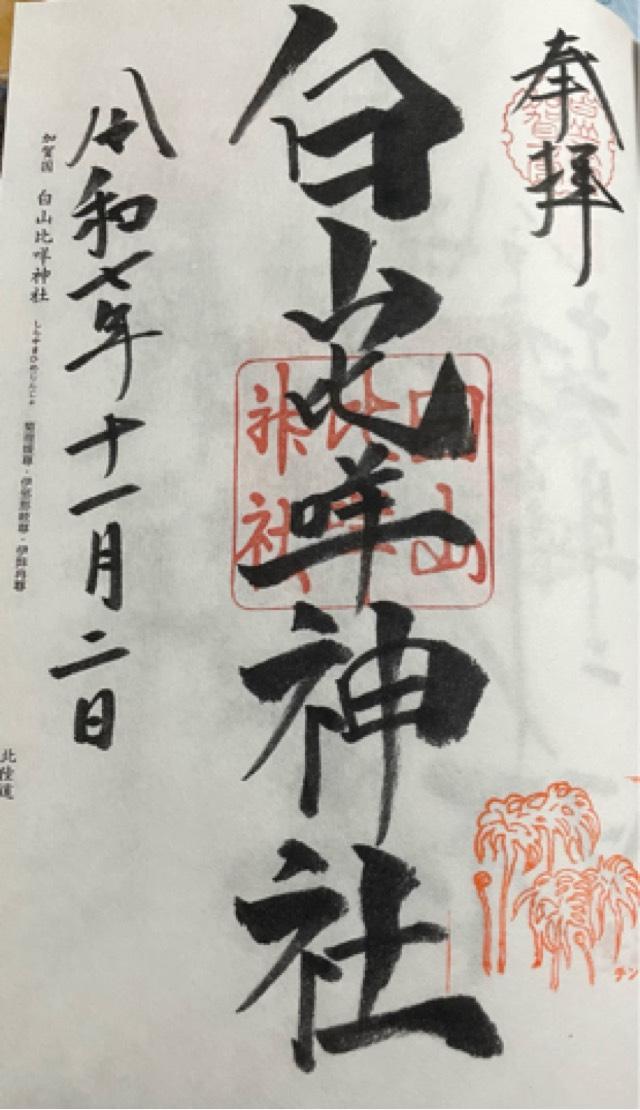 奉拝
白山比咩神社
白山
比咩
神社
令和七年十一月二日
加賀国 白山比咩神社 しらやまひめじんじゃ 菊理媛尊・伊弉那岐尊・伊弉冉尊
北陸道
チン